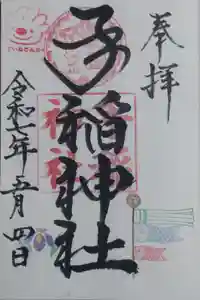 奉拝
子稲神社
令和七年五月四日